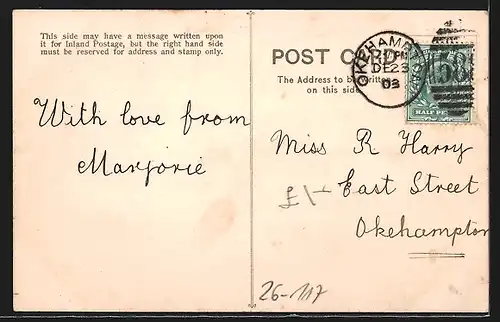 This side may have a message written upon
it for Inland Postage, but the right hand side
must be reserved for address and stamp only.
POST CARD
The Address to be written
on this side
OKEHAMPTON
DE 23
03
HALF PE
With love from
Marjorie
Miss R Harry
East Street
Okehampton
£1-
26-117